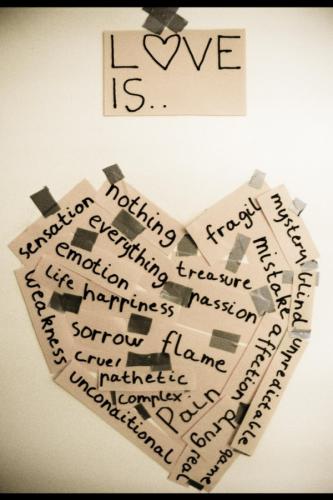 LOVE
IS..
sensation
nothing
everything
emotion
life
happiness
weakness
sorrow
cruel
pathetic
complex
unconditional
treasure
passion
flame
pain
fragil
mystery
mistake
blind
affection
unpredictable
drug
real
game